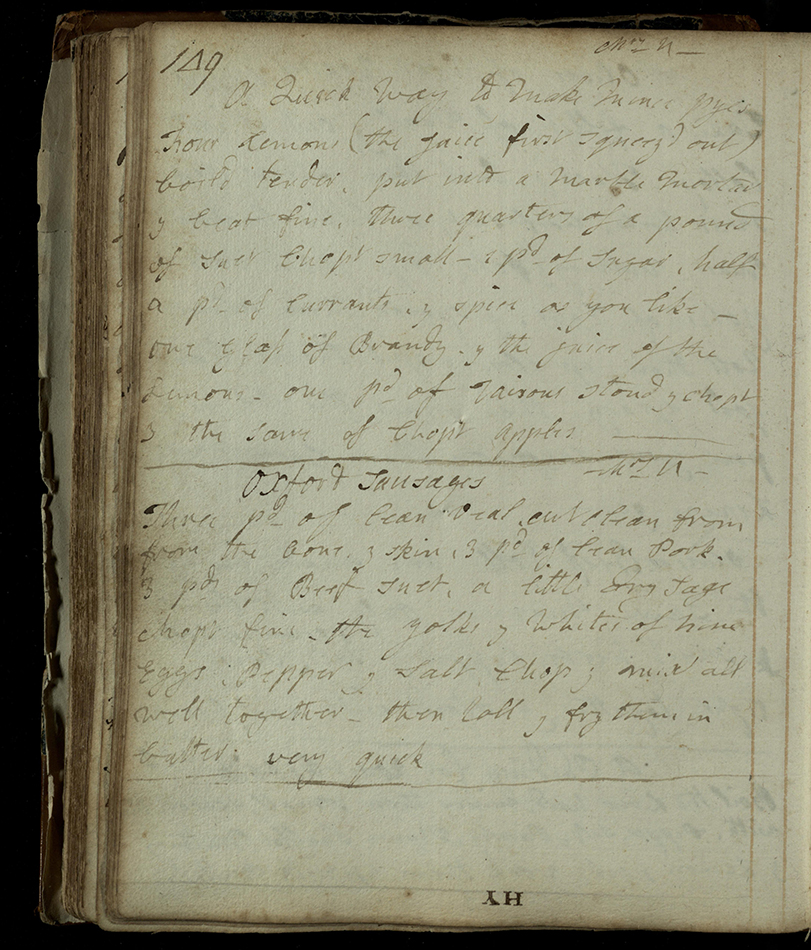 149
Mrs N —
A Quick Way to Make Mince pyes
Four Lemons (the juice first squezd out)
boild tender, put into a Marble Mortar
& beat fine, three quarters of a pound
of Suet Chopt small – pd of Sugar, half
a pd of Currants, & spice as you like –
one Glass of Brandy. & the juice of the
Lemons – one pd of raisons stoned & chopt
& the same of Chopt apples
Oxford Sausages Mrs N –
Three pd of lean Veal, cut clean from
from the bone, & skin, 3 pd of lean Pork.
3 pds of Beef Suet, a little Sage
chopt fine – the yolks & Whites of nine
Eggs, Pepper & Salt Chop & mix all
well together – then & fry them in
butter. very quick
HY